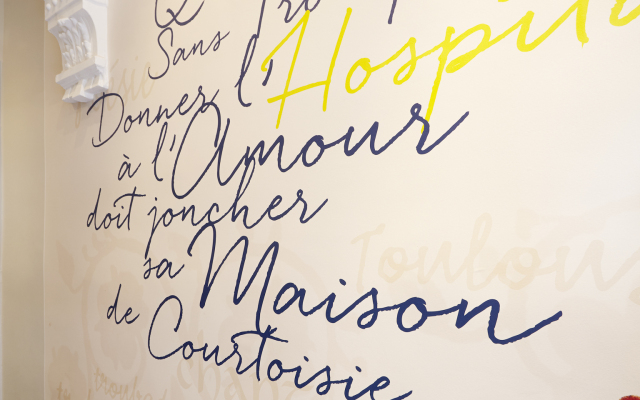 Sans
Donner l'Hospit
à l'Amour
doit joncher
sa Maison
de Courtoisie
Toulous